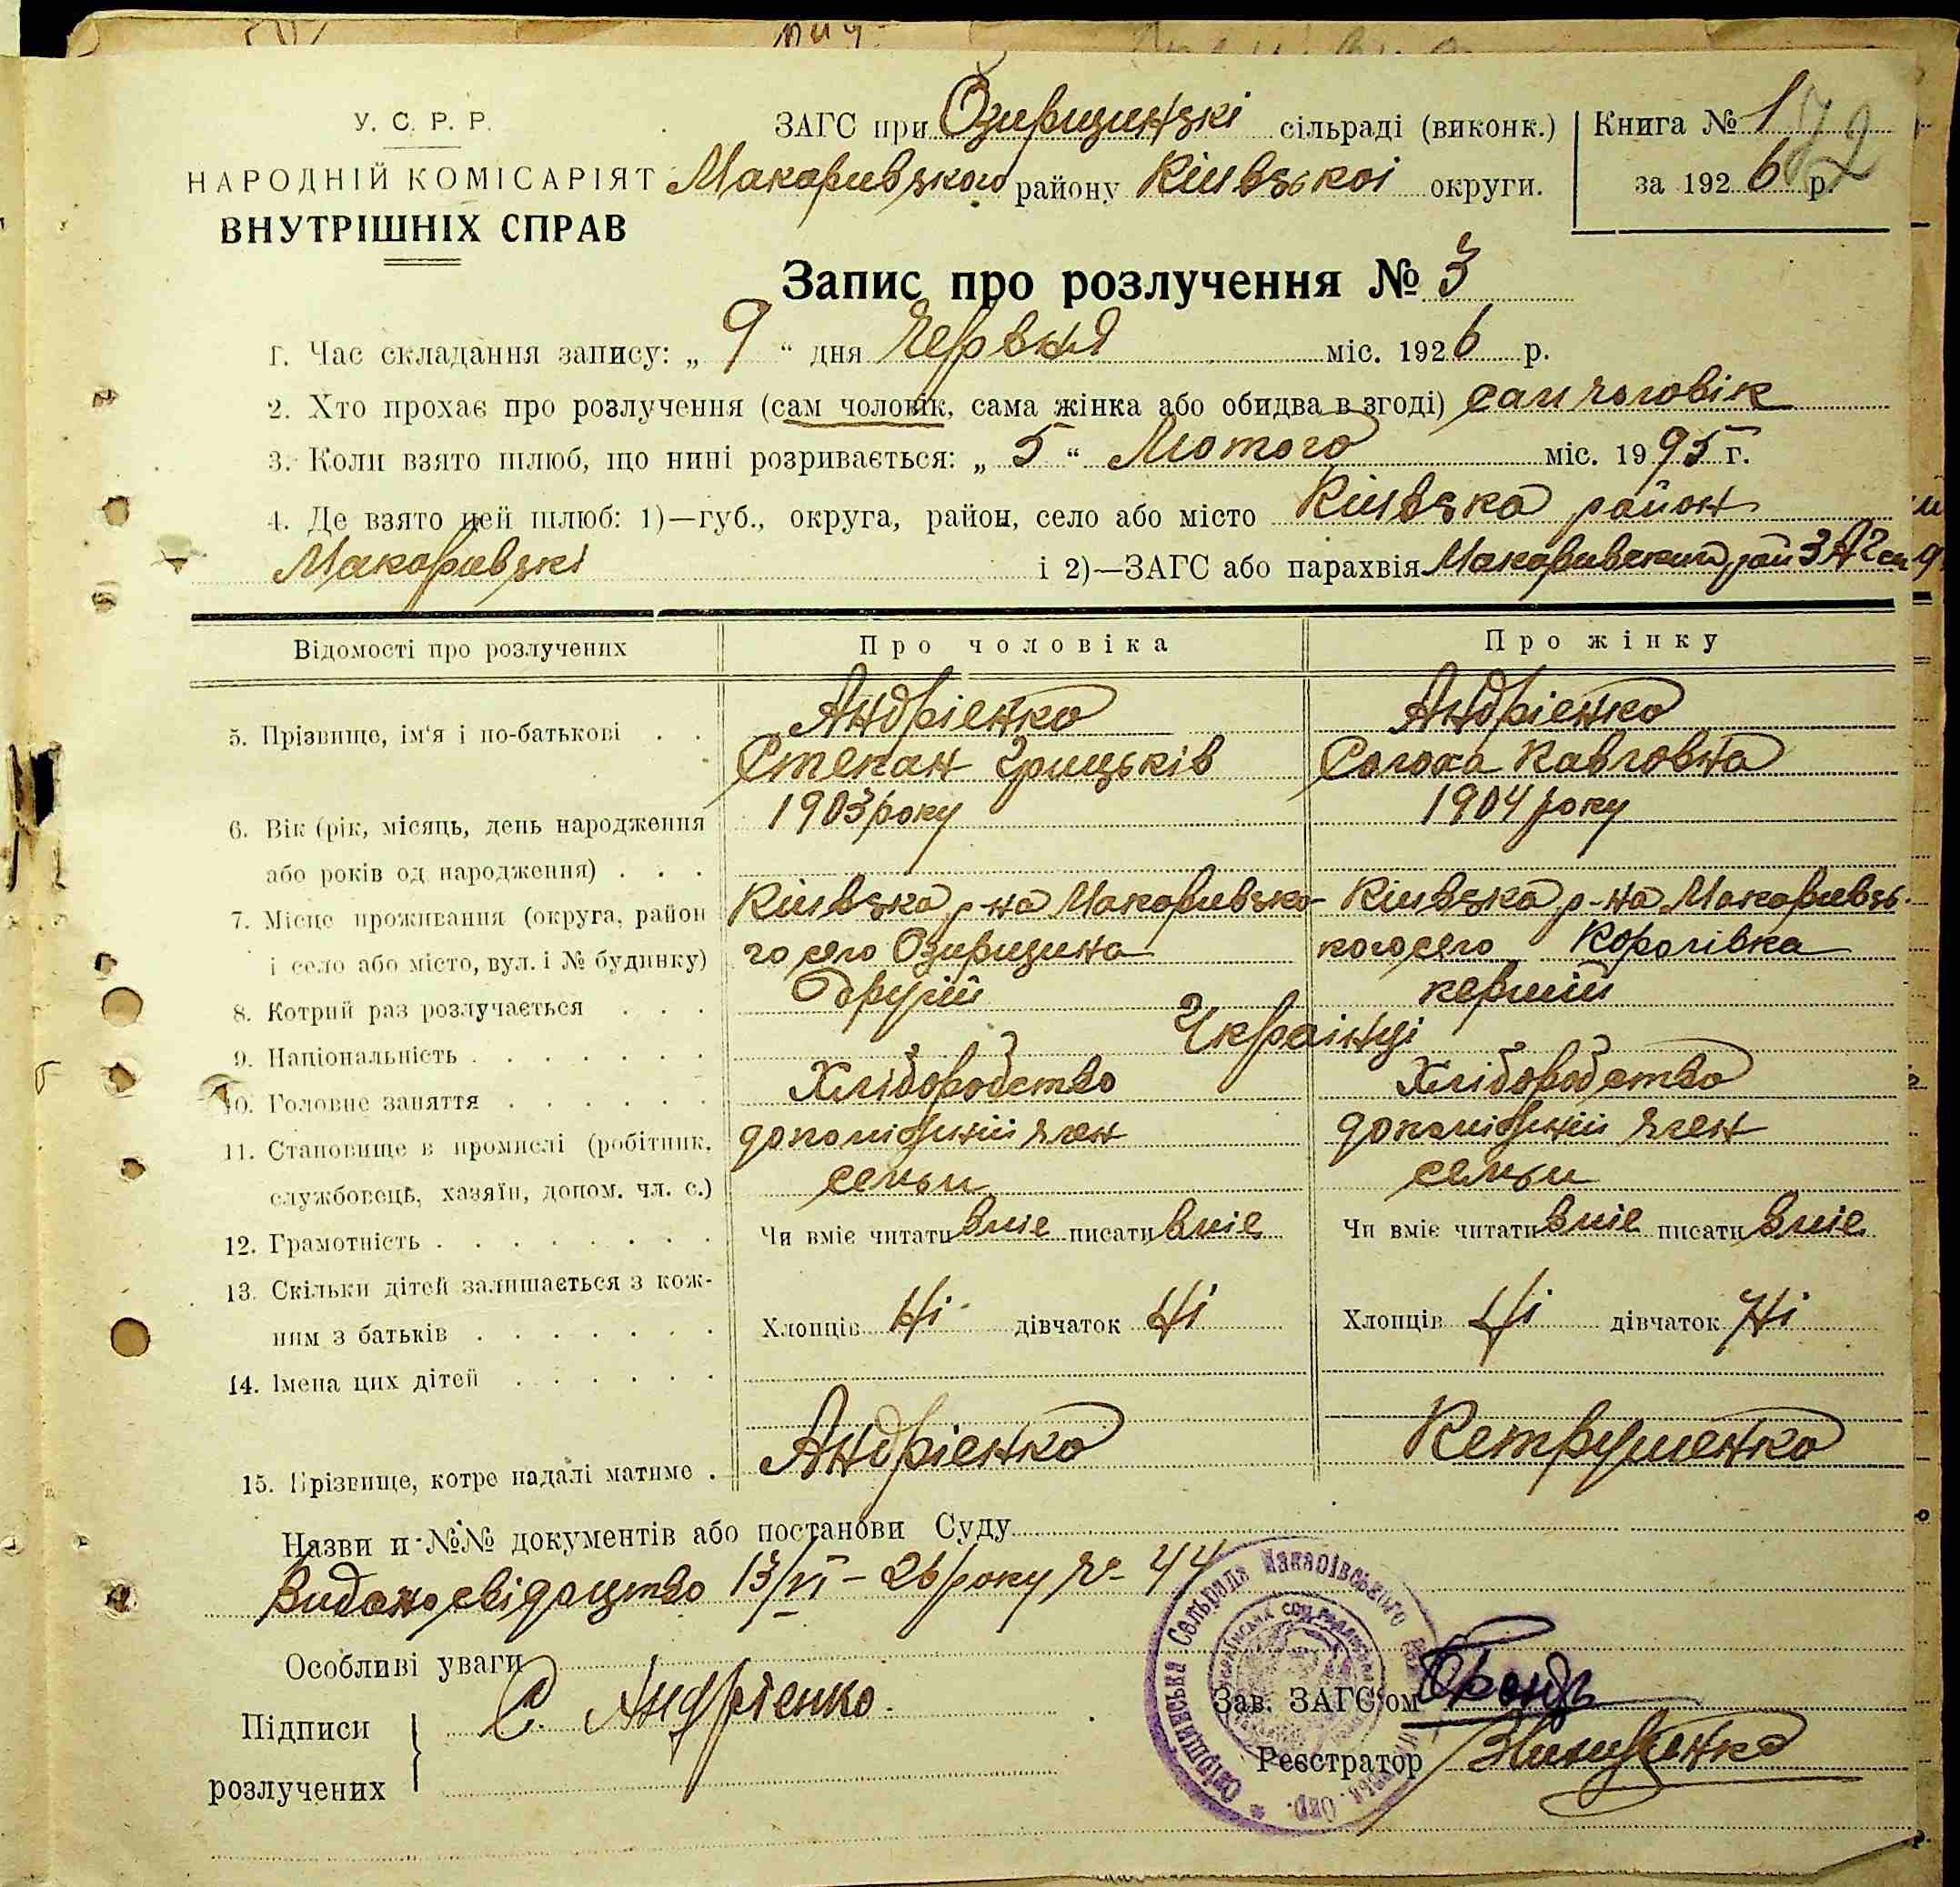 У. С. Р. Р.
НАРОДНІЙ КОМІСАРІЯТ
ВНУТРІШНІХ СПРАВ
ЗАГС при Озирщинзкі сільраді (виконк.)
Макаривзкого району Кіивзькоі округи.
Книга № 1
72
за 1926 р.
Запис про розлучення № 3
1. Час складання запису: „ 9 “ дня Червня міс. 1926 р.
2. Хто прохає про розлучення (сам чоловік, сама жінка або обидва в згоді) сам чоловік
3. Коли взято шлюб, що нині розривається: „ 5 “ Лютого міс. 19 95 г.
4. Де взято цей шлюб: 1)—губ., округа, район, село або місто Кіивзка район
Макаривзкі і 2)—ЗАГС або парахвія Макаривский рай ЗАГ
Відомості про розлучених
Про чоловіка
Про жінку
5. Прізвище, ім'я і по-батькові . .
Андріенко
Степан Грицьків
Андріенко
Солоха Павловна
6. Вік (рік, місяць, день народження
або років од народження) . . .
1903 року
1904 року
7. Місце проживання (округа, район
і село або місто, вул. і № будинку)
Кіивзка р-на Макаривзко-
го село Озирщина
Киивзка р-на Макаривзь-
кого село Королівка
8. Котрий раз розлучається . . .
другій
первий
9. Національність . . . . . . .
Украінці
10. Головне заняття . . . . . .
Хлібобробство
Хлібобробство
11. Становище в промислі (робітник,
службовець, хазяїн, допом. чл. с.)
член
семьи
член
семьи
12. Грамотність . . . . . . . .
Чи вміє читати вміе писати вміе
Чи вміє читати вміе писати вміе
13. Скільки дітей залишається з кож-
ним з батьків . . . . . . .
Хлопців Ні дівчаток Ні
Хлопців Ні дівчаток Ні
14. Імена цих дітей . . . . . .
15. Прізвище, котре надалі матиме .
Андріенко
Петрушенко
Назви й №№ документів або постанови Суду
Видано свідоцтво 13/VI – 26 року № 44
Особливі уваги
Підписи
розлучених
С. Андріенко.
Зав. ЗАГС'ом
Реєстратор
Сельрада Макарівського